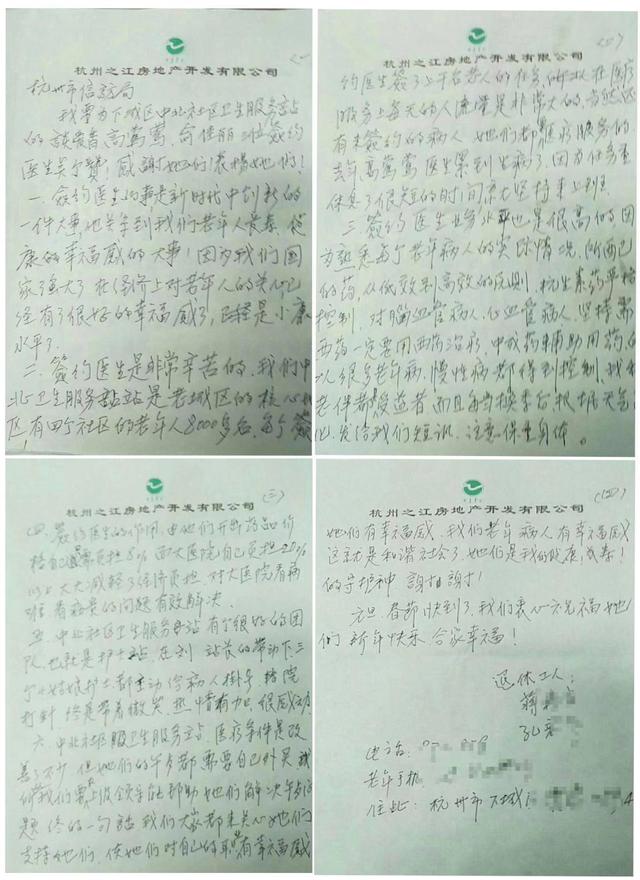 (一)
杭州之江房地产开发有限公司
杭州市信访局
我要为下城区中北社区卫生服务站
的 高莺莺、俞佳丽二位签约
医生点个赞!感谢她们!表扬她们!
一、签约医生的事是新时代中创新的
一件大事,她关系到我们老年人长寿、健
康的幸福感的大事!因为我们国
家强大了,在经济上对老年人的关心已
经有了很好的幸福感了,已经是小康
水平了。
二、签约医生是非常辛苦的,我们中
北卫生服务站是老城区的核心地
区,有四个社区的老年人8000多名,每个签
(二)
杭州之江房地产开发有限公司
约医生签了上千名老人的任务,所以在医疗
服务上每天的人流量是非常大的,当然还
有未签约的病人,她们都要医疗服务的
去年高莺莺医生累到生病了,因为任务重
休息了很短的时间就坚持来上班
三、签约医生业务水平也是很高的,因
为熟悉每个老年病人的实际情况,所配
的药,从低效到高效的原则,抗生素药严格
控制,对脑血管病人、心血管病人,坚持需
西药一定要用西药治疗,中成药辅助用药,
以很多老年病、慢性病都得到控制,我和
老伴都受益者,而且每当换季后根据天气
化,发给我们短讯,注意保重身体。
(三)
杭州之江房地产开发有限公司
四、签约医生的作用,由她们开出药品价
格自己只负担8%,而大医院自己负担20%
以上,大大减轻了经济负担,对大医院看病
难、看病贵的问题有效解决。
五、中北社区卫生服务站有个很好的团
队,也就是护士站,在刘站长的带动下,三
个小姑娘护士都主动给病人掛号、
打针,终是带着微笑,热情有加,很感动
六、中北社区服卫生服务站,医疗条件是改
善了不少,但她们的午歺都需要自己外买,
我们要求上级领导能帮助她们解决午歺问
题,终的一句话,我们大家都来关心她们
支持她们,使她们对自己的职业有幸福感
(四)
杭州之江房地产开发有限公司
她们有幸福感,我们老年病人有幸福感
这就是和谐社会了,她们是我的健康、长寿!
的守护神,謝謝謝!
元旦、春节快到了,我们衷心祝福她
们新年快乐,合家幸福!
退休工人:
蒋
孔
电话:
老年手机
住址:杭州市下城